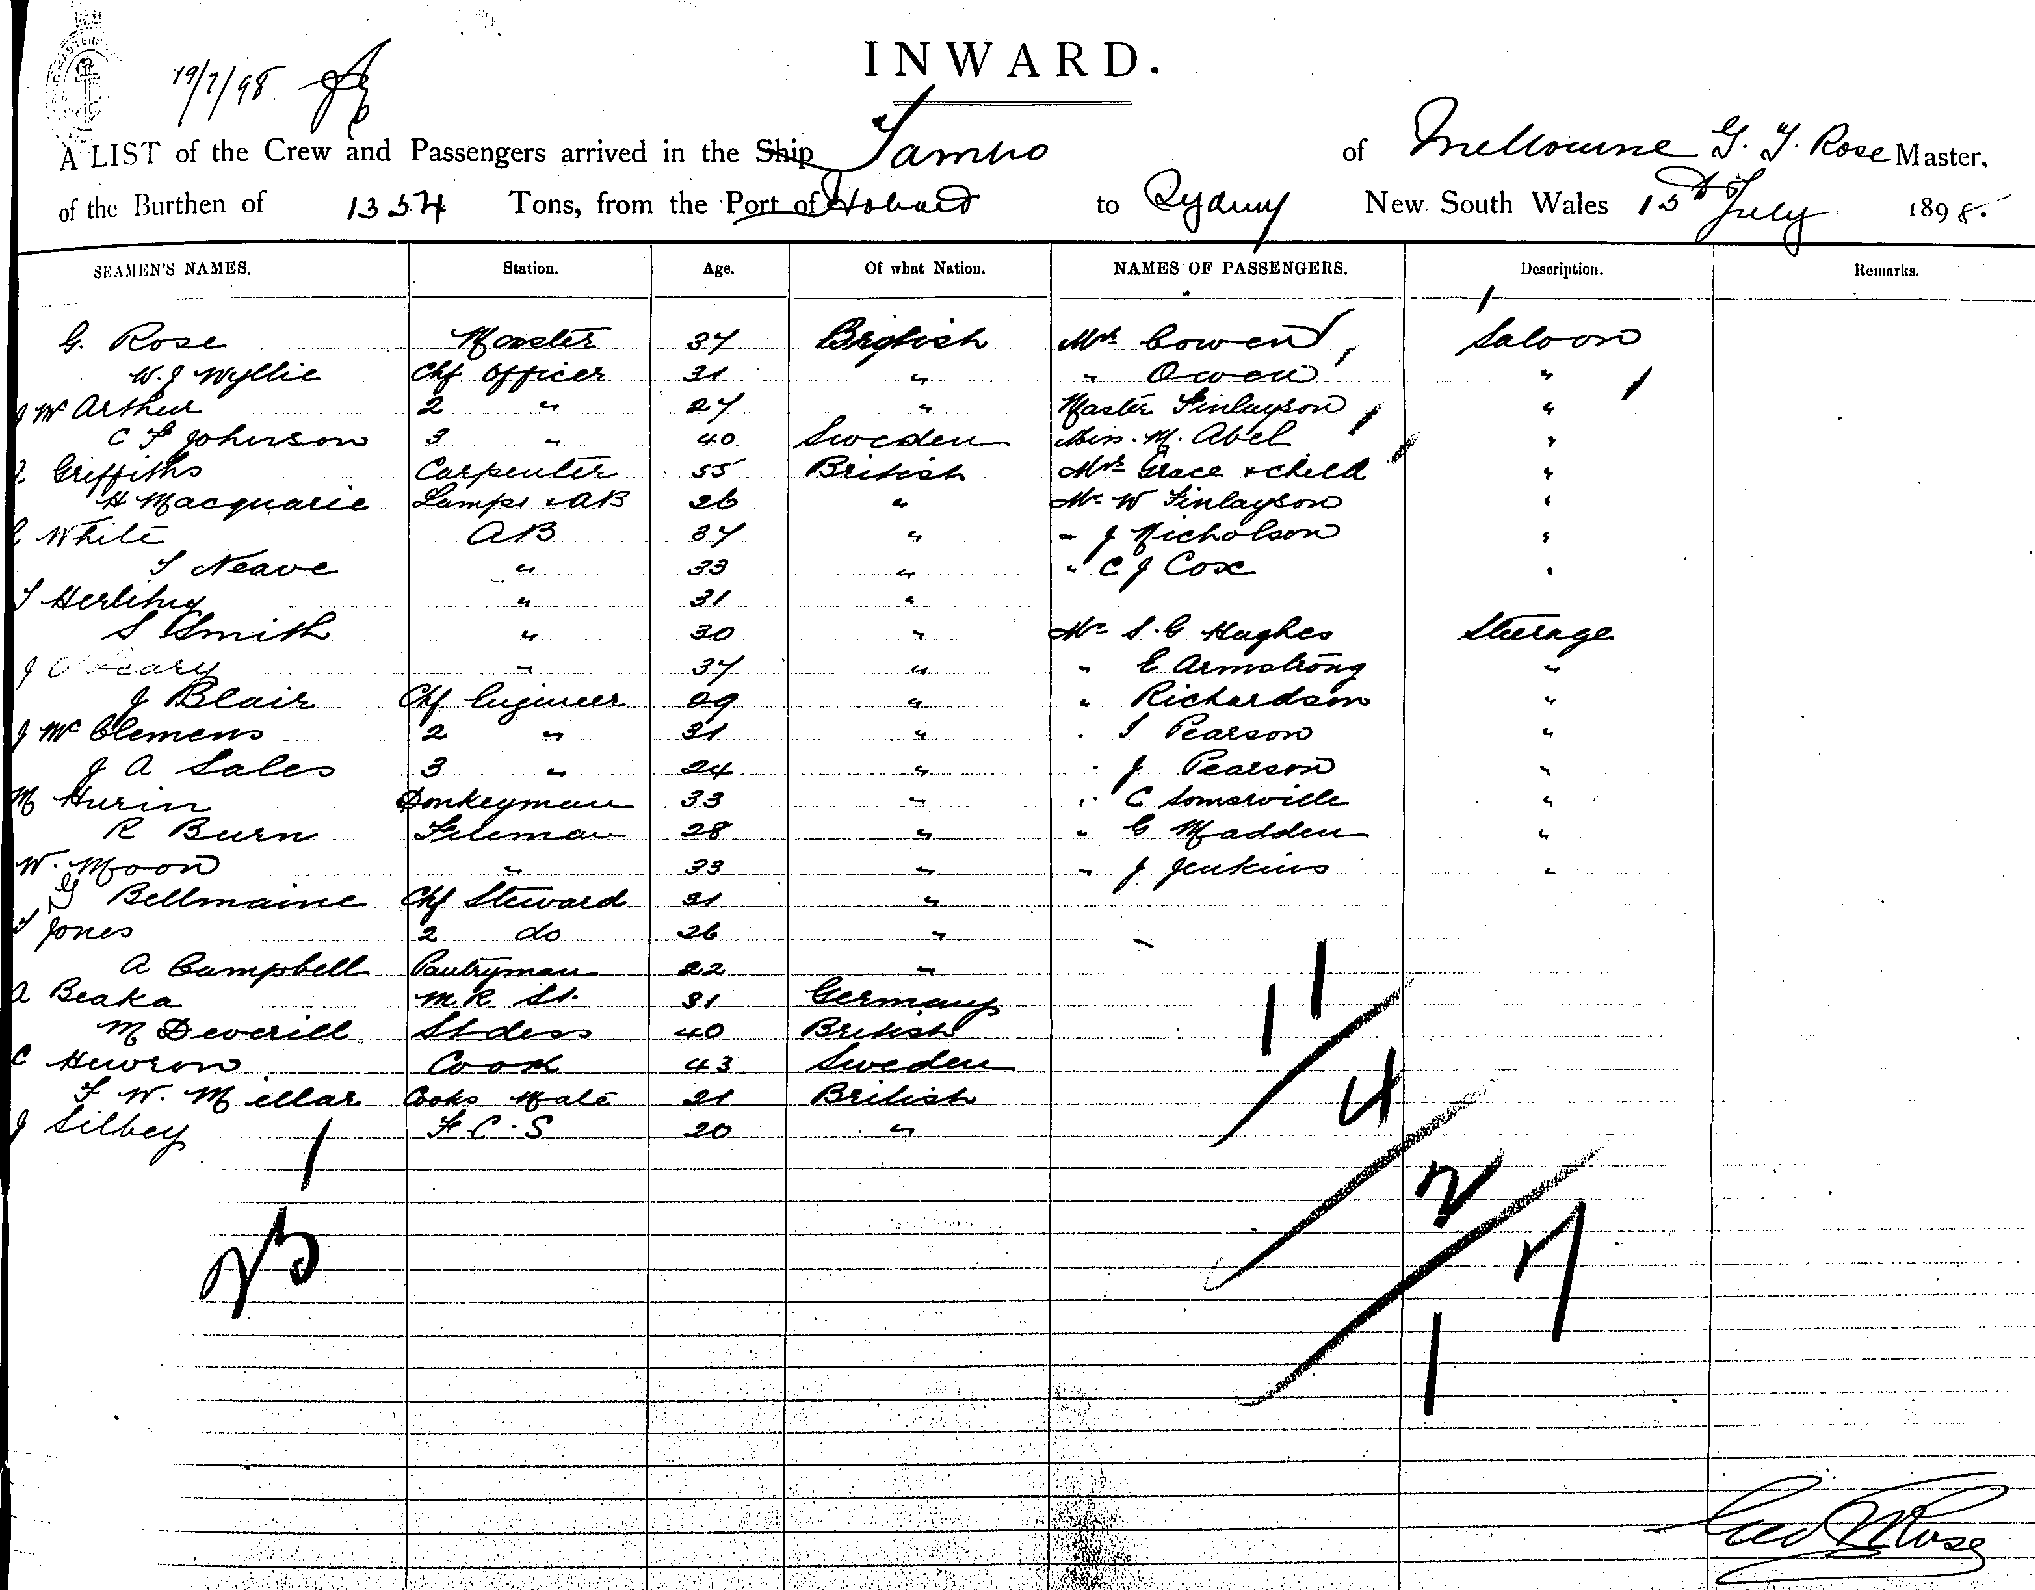 INWARD.
19/7/98
A LIST of the Crew and Passengers arrived in the Ship Tambo of Melbourne G. T. Rose Master,
of the Burthen of 1354 Tons, from the Port of Hobart to Sydney New South Wales 15th July 1898.
SEAMEN'S NAMES. Station. Age. Of what Nation. NAMES OF PASSENGERS. Description. Remarks.
G. Rose Master 37 British Mrs Cowen Saloon
W. J Wyllie Chf Officer 31 " " Owen "
J Mc Arthur 2 " 27 " Master Finlayson "
C F Johnson 3 " 40 Sweden Miss. M. Abel "
Griffiths Carpenter 55 British Mrs Grace + child "
H Macquarie Lamps & AB 26 " Mr W Finlayson "
White AB 37 " " J Nicholson "
T Neave " 33 " " C J Cox "
T Herlihy " 31 "
S Smith " 30 " Mr S. G Hughes Steerage
J O'Leary " 37 " " E Armstrong "
J Blair Chf Engineer 29 " " Richardson "
J Mc Clemens 2 " 31 " " S Pearson "
J A Sales 3 " 24 " " J Pearson "
M Hurin Donkeyman 33 " " C Somerville "
R Burn Fireman 28 " " G Madden "
W. Moon " 33 " " J. Jenkins "
Bellmaine Chf Steward 31 "
T Jones 2 do 26 "
A Campbell Pantryman 22 "
A Beaka M R St. 31 Germany
M Deverill Stdess 40 British
C Hewron Cook 43 Sweden
F W. Millar Cooks Mate 21 British
J Silbey F C. S 20 "
11
4
2
25
7
1
Geo Rose